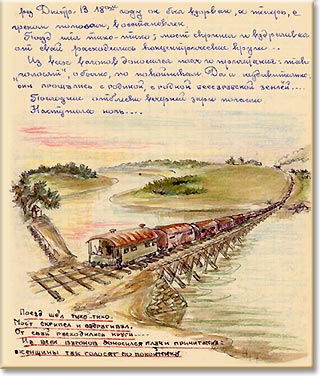 рез Днестр. В 1941 году он был взорван, а теперь, с
грехом пополам, восстановлен.
Поезд шёл тихо-тихо; мост скрипел и вздрагивал,
от свай расходились концентрические круги...
Из всех вагонов доносился плач и причитания: так
"голосят", обычно, по покойникам. Да и неудивительно:
они прощались с родиной, с родной бессарабской землёй...
Последние отблески вечерней зари погасли
Наступила ночь...
Поезд шёл тихо-тихо.
Мост скрипел и вздрагивал,
От свай расходились круги...
Из всех вагонов доносился плач и причитания:
женщины так голосят по покойнику